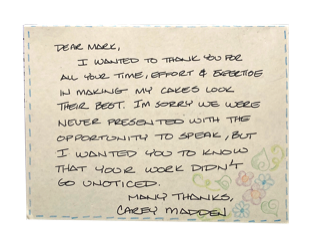 DEAR MARK,
I WANTED TO THANK YOU FOR
ALL YOUR TIME, EFFORT & EXPERTISE
IN MAKING MY CAKES LOOK
THEIR BEST. I'M SORRY WE WERE
NEVER PRESENTED WITH THE
OPPORTUNITY TO SPEAK, BUT
I WANTED YOU TO KNOW
THAT YOUR WORK DIDN'T
GO UNOTICED.
MANY THANKS,
CAREY MADDEN